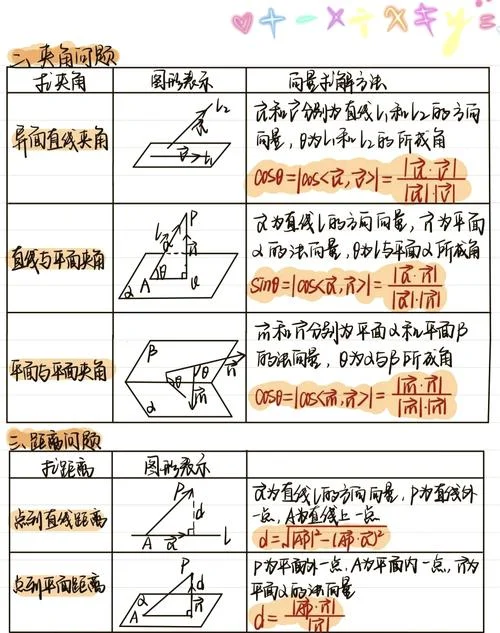 + - × ÷ × 
二、夹角问题
求夹角 图形表示 向量求解方法
异面直线夹角
l₂
u⃗
v⃗ l₁
u⃗和v⃗分别为直线l₁和l₂的方向
向量，θ为l₁和l₂的所成角
cosθ=|cos<u⃗,v⃗>|=|u⃗·v⃗|/|u⃗|·|v⃗|
直线与平面夹角
l u⃗ P
n⃗
α A θ
u⃗为直线l的方向向量，n⃗为平面
α的法向量，θ为l与平面α所成角
sinθ=|cos<u⃗,n⃗>|=|u⃗·n⃗|/|u⃗|·|n⃗|
平面与平面夹角
β
θ θ n⃗
α m⃗
m⃗和n⃗分别为平面α和平面β
的法向量，θ为α与β所成角
cosθ=|cos<m⃗,n⃗>|=|m⃗·n⃗|/|m⃗|·|n⃗|
三、距离问题
求距离 图形表示
点到直线距离
P
d
A u⃗ l
u⃗为直线l的方向向量，P为直线外
一点，A为直线上一点
d=√|AP⃗|²-(AP⃗·u⃗)²
点到平面距离
P
α d
n⃗
A
P为平面外一点，A为平面内一点，n⃗为
平面α的法向量
d=|AP⃗·n⃗|/|n⃗|